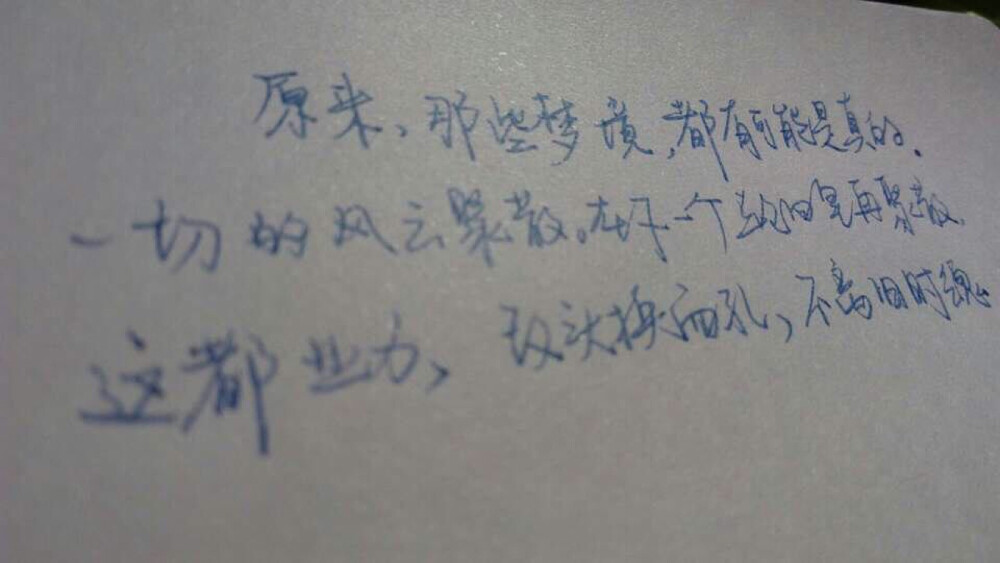 原来,那些梦境,都有可能是真的.
一切的风云聚散。在下一个轮回里再聚散.
这都业力,改头换面孔,不离旧时